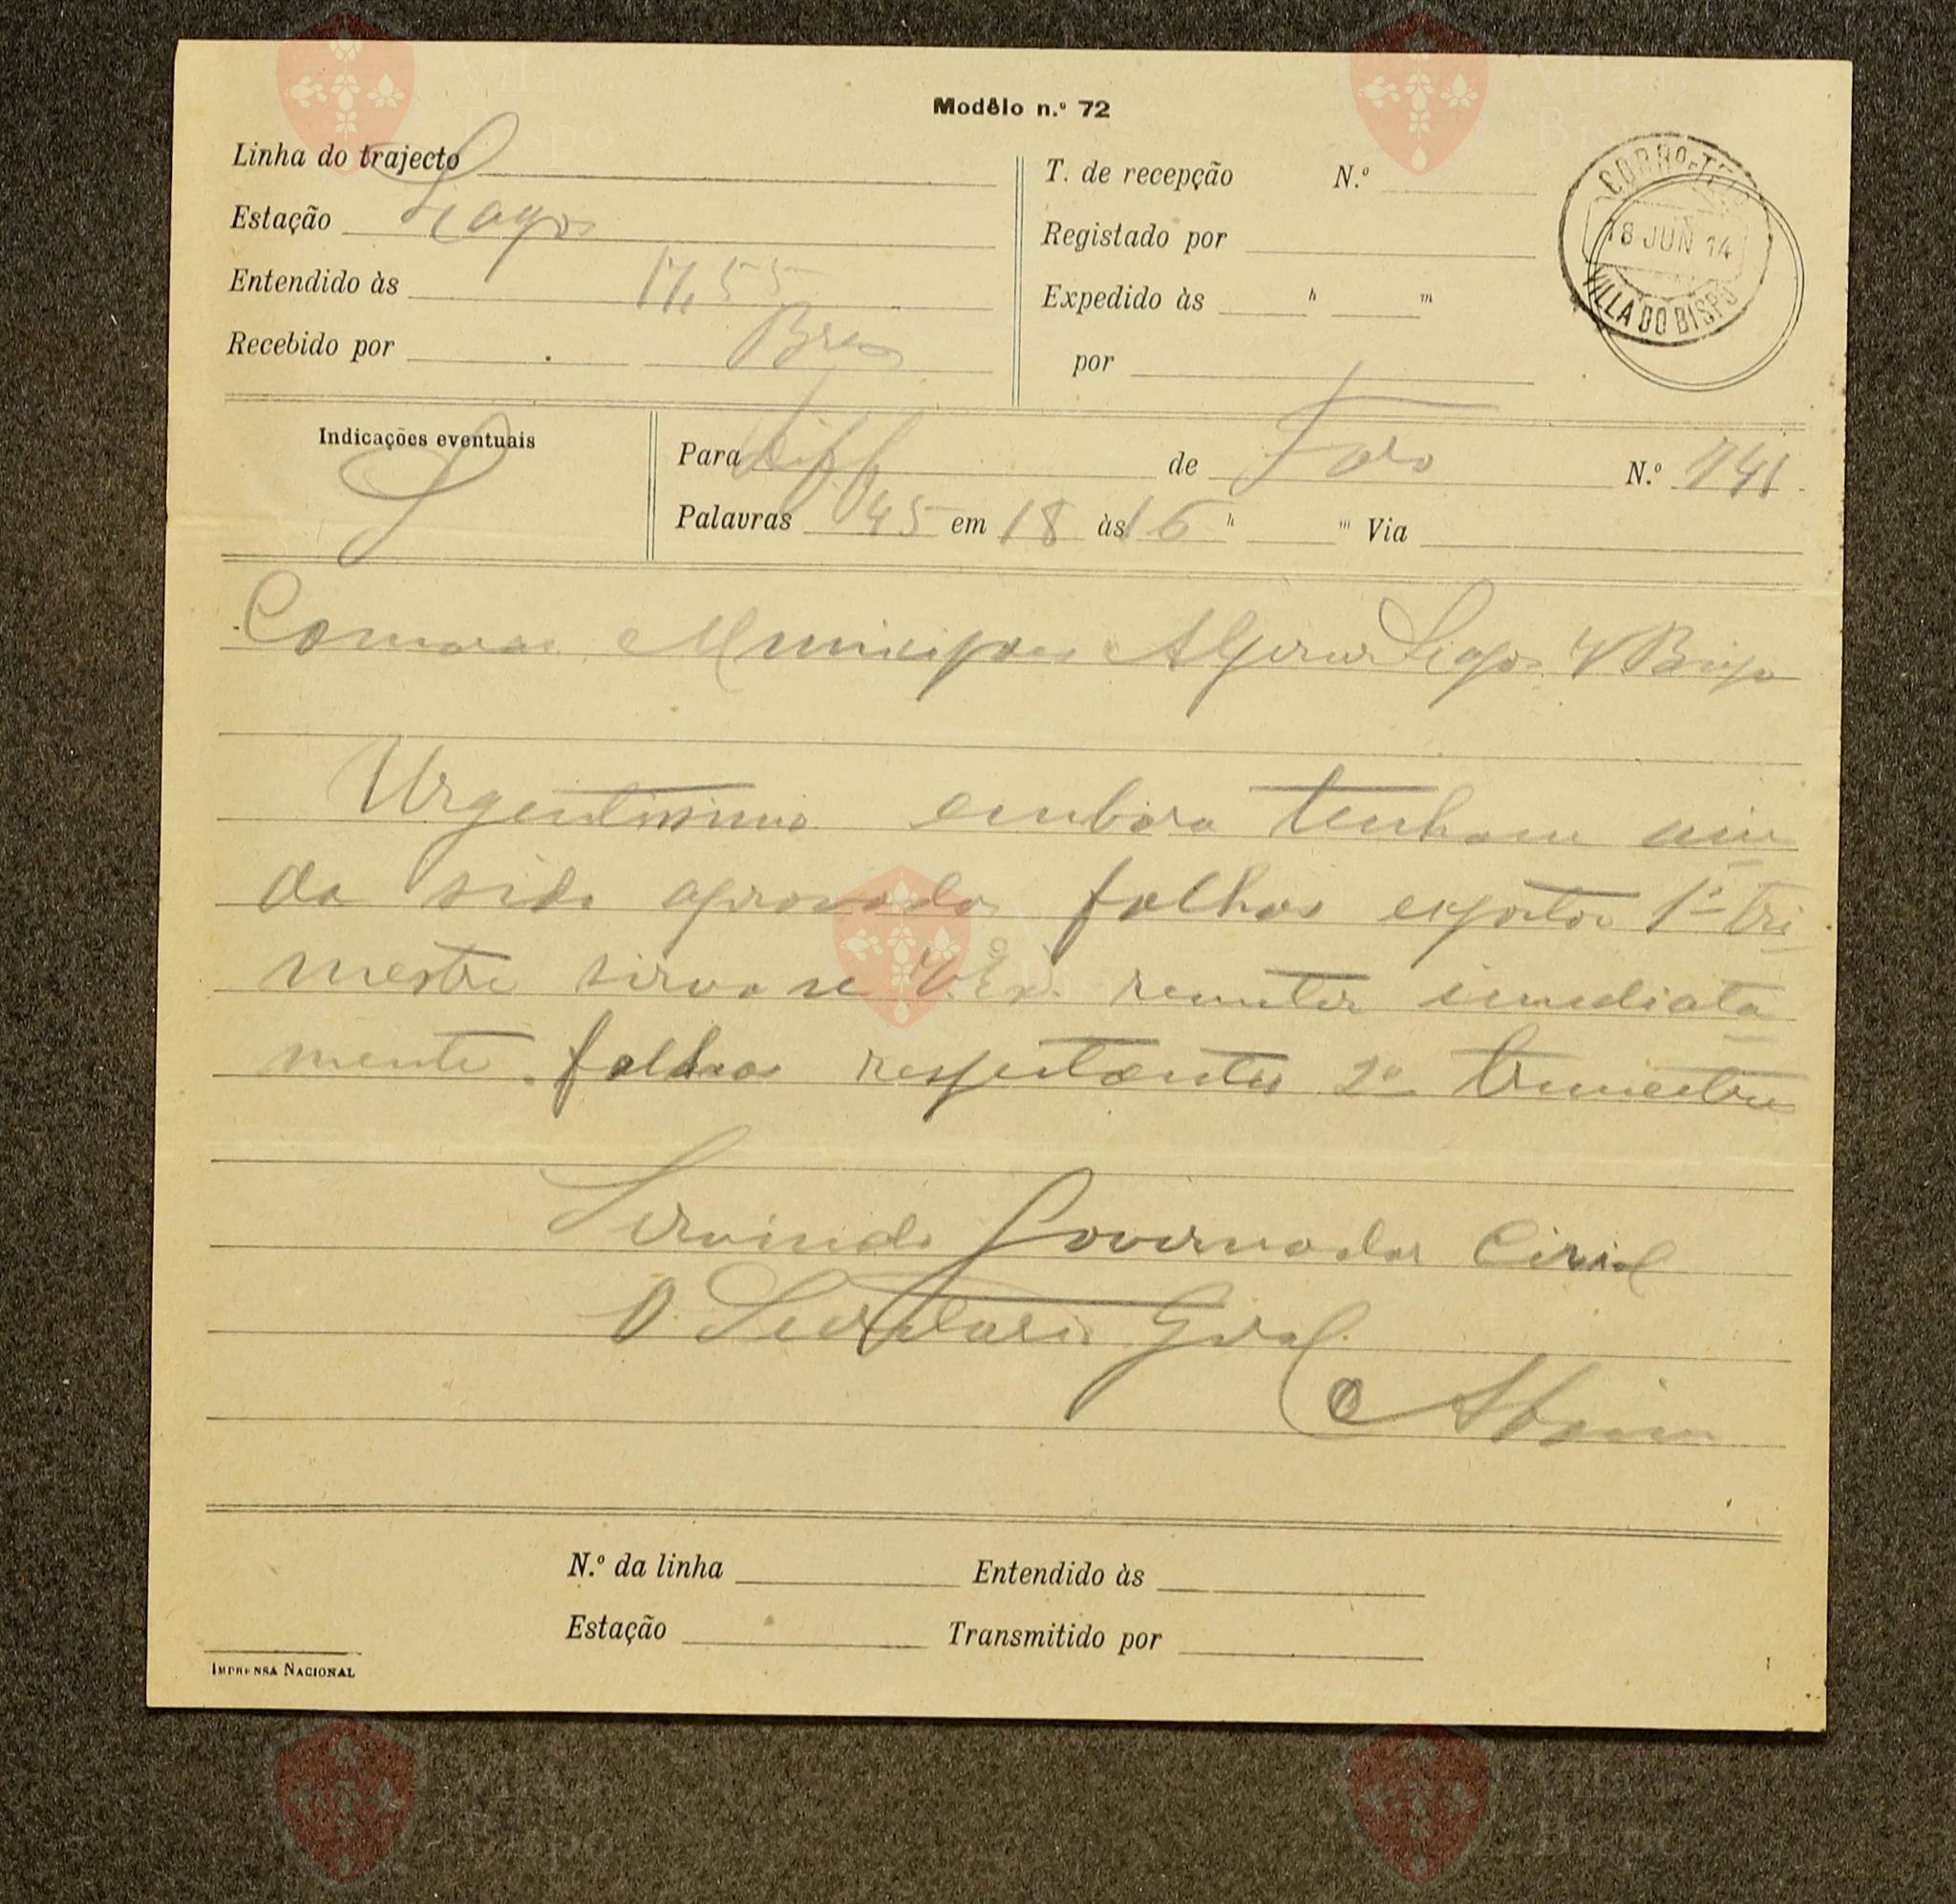 Modêlo n.º 72
Linha do trajecto
Estação Lagos
Entendido às 17,55
Recebido por
T. de recepção N.º
Registado por
Expedido às h m
por
CORRº E TEL
18 JUN 14
VILLA DO BISPO
Indicações eventuais
Para diff de Faro N.º 741
Palavras 45 em 18 às 16 h m Via
Camaras Municipaes Aljezur Lagos V Bispo
Urgentissimo embora tenham ain
da sido aprovadas folhas expostos 1º tri
mestre sirva se V. Exª. remeter imediata
mente folhas respeitantes 2º trimestre
Servindo Governador Civil
O Secretario Geral
IMPRENSA NACIONAL
N.º da linha Entendido às
Estação Transmitido por
Vila do
Bispo